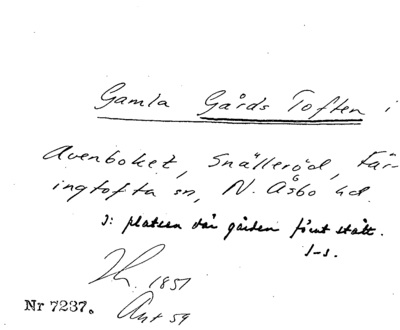 Gamla Gårds Toften i
Avenboket, Snälleröd, Fär-
ingtofta sn, N. Åsbo hd.
ɔ: platsen där gården förut stått.
J-s.
1857
Nr 7237. Ant 59